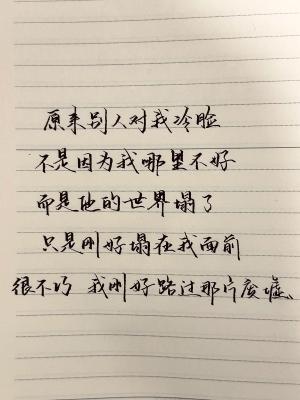 原来别人对我冷脸
不是因为我哪里不好
而是他的世界塌了
只是刚好塌在我面前
很不巧 我刚好路过那片废墟、